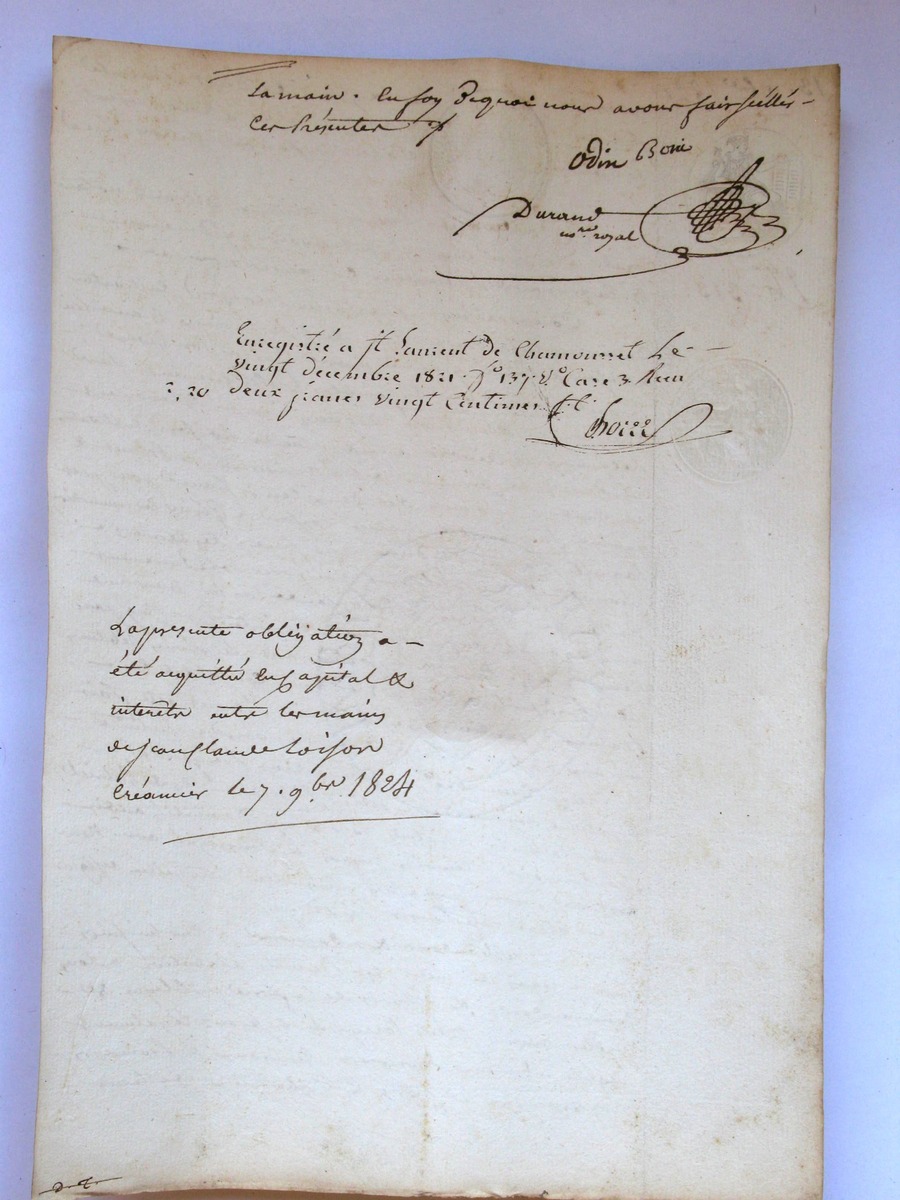 la main. En foy de quoi nous avons fait scéllér
Ces Présentes
Odin
Durand
nore royal
Enregistré a st Laurent de Chamousset Le
vingt décembre 1821 fo 137 Vo Case 3 Recu
2,20 deux francs vingt Centimes
La presente obligation a
été acquittée en Capital &
interêts entre les mains
de jean Claude Loison
Créancier le 7. 9bre 1824